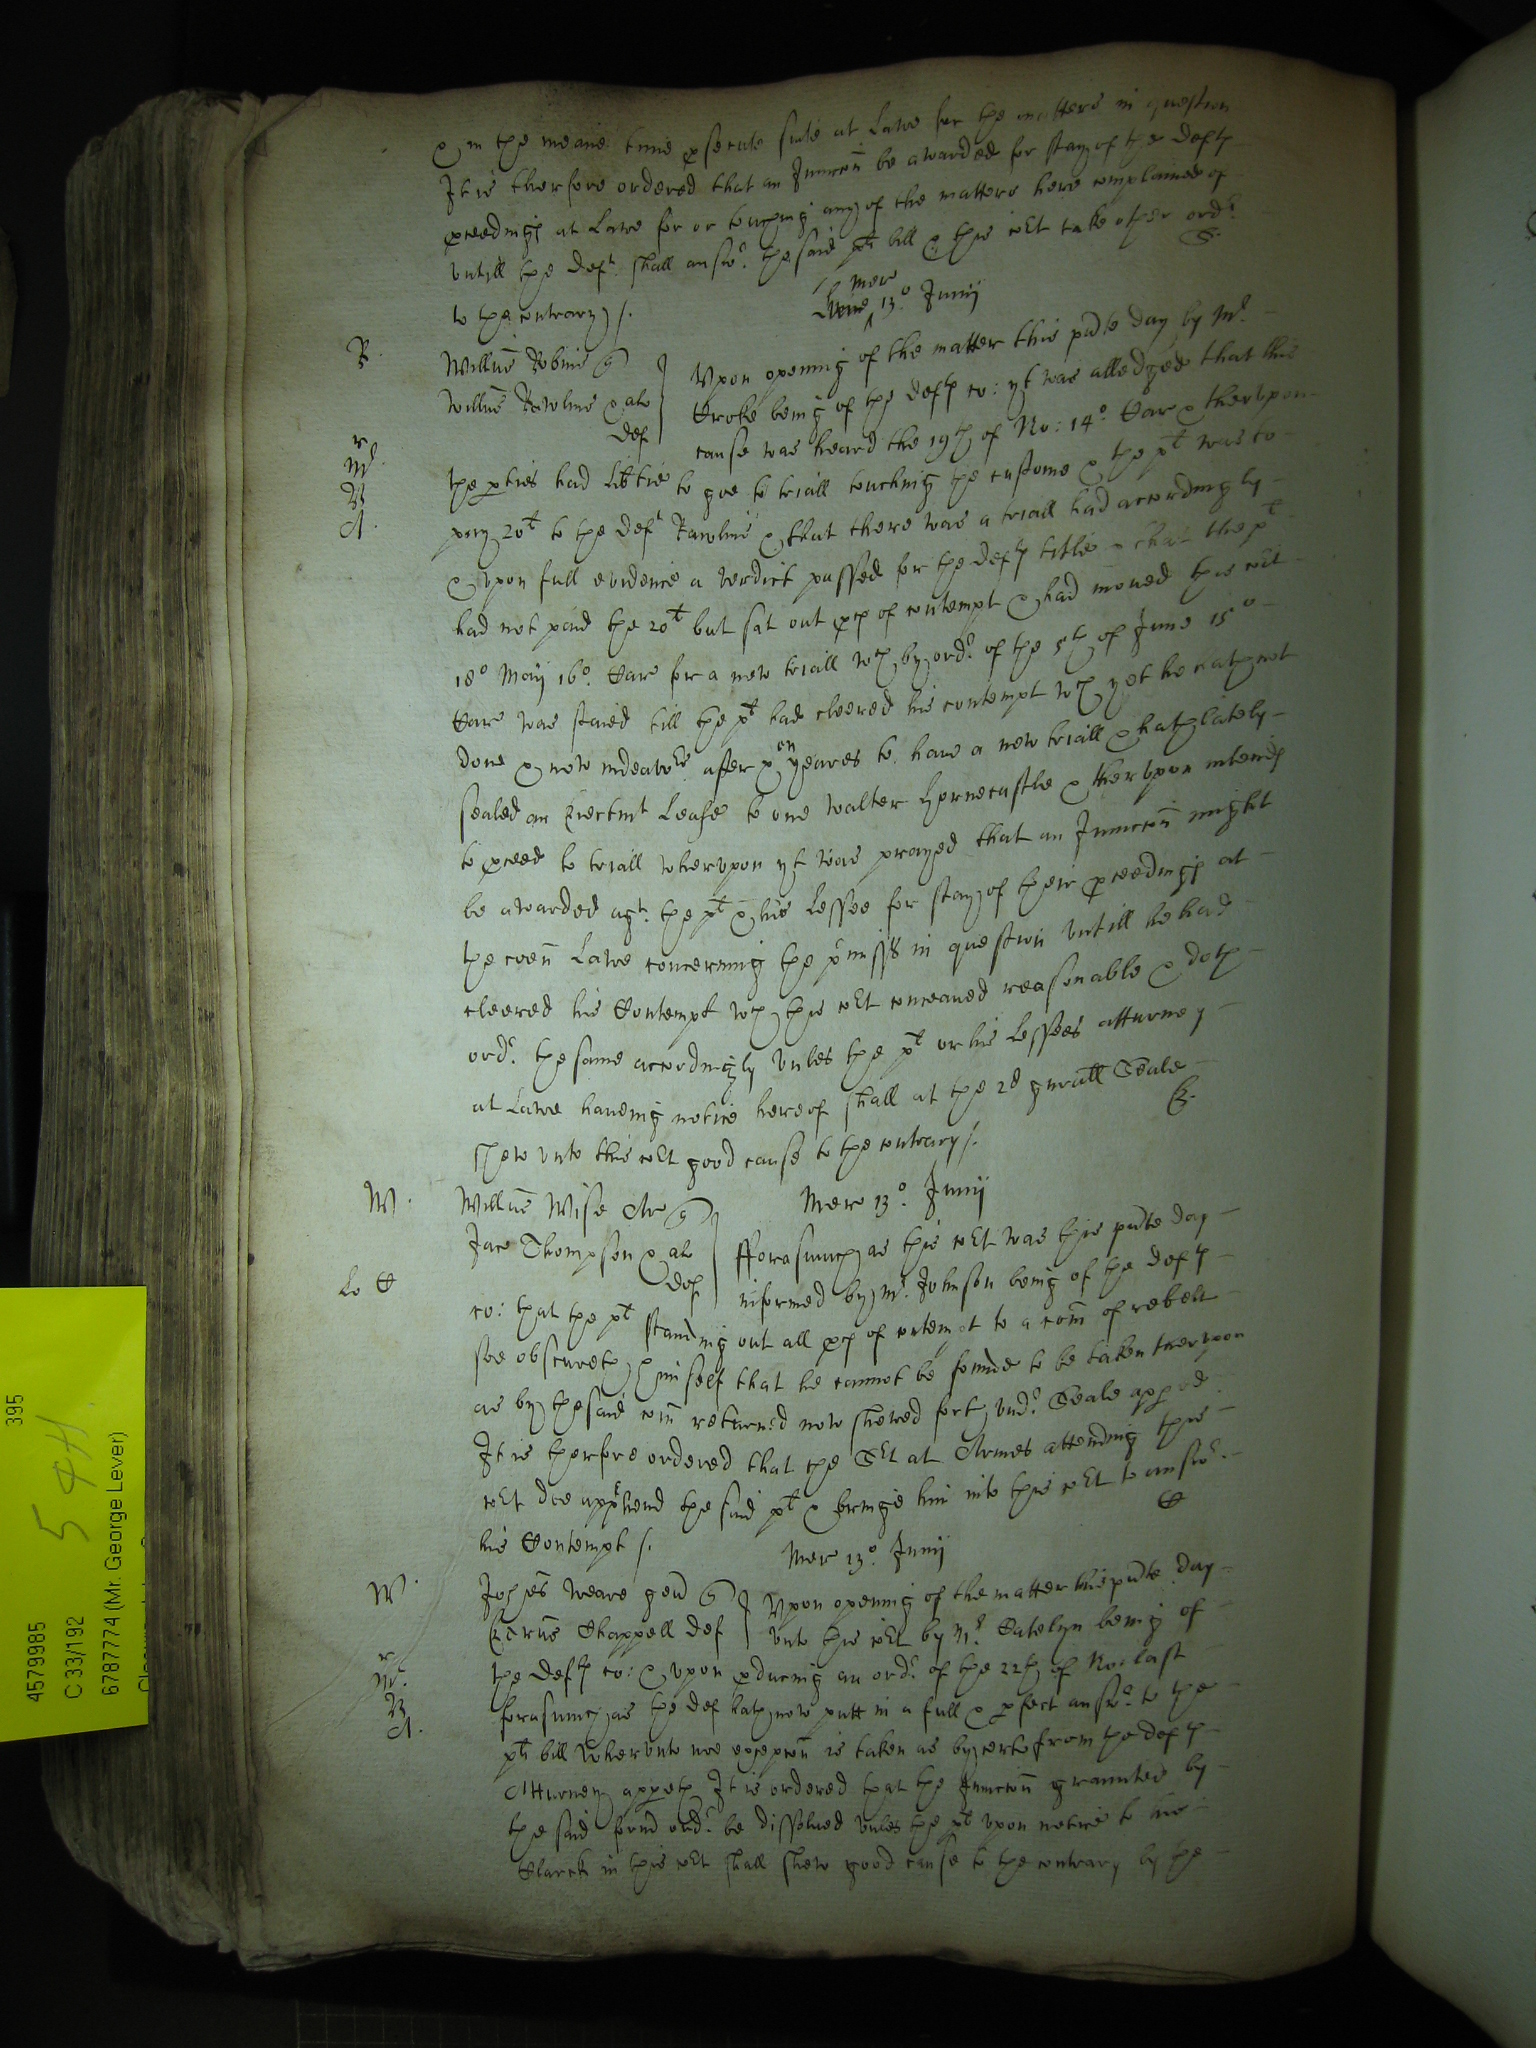 & in the meane time psecute suite at Lawe for the matters in question
It is therfore ordered that an Iniuncon be awarded for stay of the defts
pceedings at Lawe for or touching any of the matters here complained of
untill the deft shall answr the said plts bill & this cort take other ordr
to the contrary /.
mer
13° Junij
R.
Willm̄ Robins q
Willm̄ Rawlins & als
def
Upon opening of the matter this pnte day by Mr
Croke being of the defts co: yt was alledged that this
cause was heard the 19th of No: 14° Car & therupon
r
Mr.
B
A.
the pties had lib̄tie to goe to triall touching the custome & the plt was to
pay 20l to the deft Rawlins & that there was a triall had accordingly
& upon full evidence a verdict passed for the defts title & that the plt
had not paid the 20l but sat out pces of contempt & had moued this cort
18° Maij 16° Car for a new triall wch by ordr of the 5th of June 15°
Care was staied till the plt had cleered his contempt wch yet he hath not
done & now indeavors after yeares to haue a new triall & hath lately
sealed an Eiectmt Lease to one Walter Hornecastle & therupon intends
to pceed to triall wherupon yt was prayed that an Iniuncon might
be awarded agt the plt & his Lessee for stay of their pceedings at
the coen Lawe concerning the pmisses in question untill he had
cleered his Contempt wch this cort conceaued reasonable & doth
ordr the same accordingly unles the plt or his Lessees atturney
at Lawe haueing notice hereof shall at the 2d gnrall Seale
shew unto this cort good cause to the contrary /.
Mer 13° Junij
W.
Willm̄ Wise Ar q
Jaco Thompson & als
def
Lo C
fforasmuch as this cort was this pnte day
informed by Mr Johnson being of the defts
co: that the plt standing out all pces of contempt to a com̄ of rebell
soe obscureth himself that he cannot be founde to be taken therupon
as by the said com̄ returned now shewed forth undr Seale appred
It is therfore ordered that the Sert at Armes attending this
cort doe apphend the said plt & bringe him into this cort to answr
his Contempt /.
Mer 13° Junij
W.
Johes Weare gen q
Chappell def
Upon opening of the matter this pnte day
unto this cort by Mr Catelyn being of
r
Mr.
B
A.
the defts co: & upon pducing an ordr of the 22th of No: last
forasmuch as the def hath now putt in a full & pfect answr to the
plts bill wherunto noe excepcon is taken as by cert from the defts
Atturney appeth It is ordered that the Iniuncon graunted by
the said formr ordr be dissolued unles the plt upon notice to his
Clarck in this cort shall shew good cause to the contrary by the
395
5 4H
4579985
C 33/192
6787774 (Mr. George Lever)